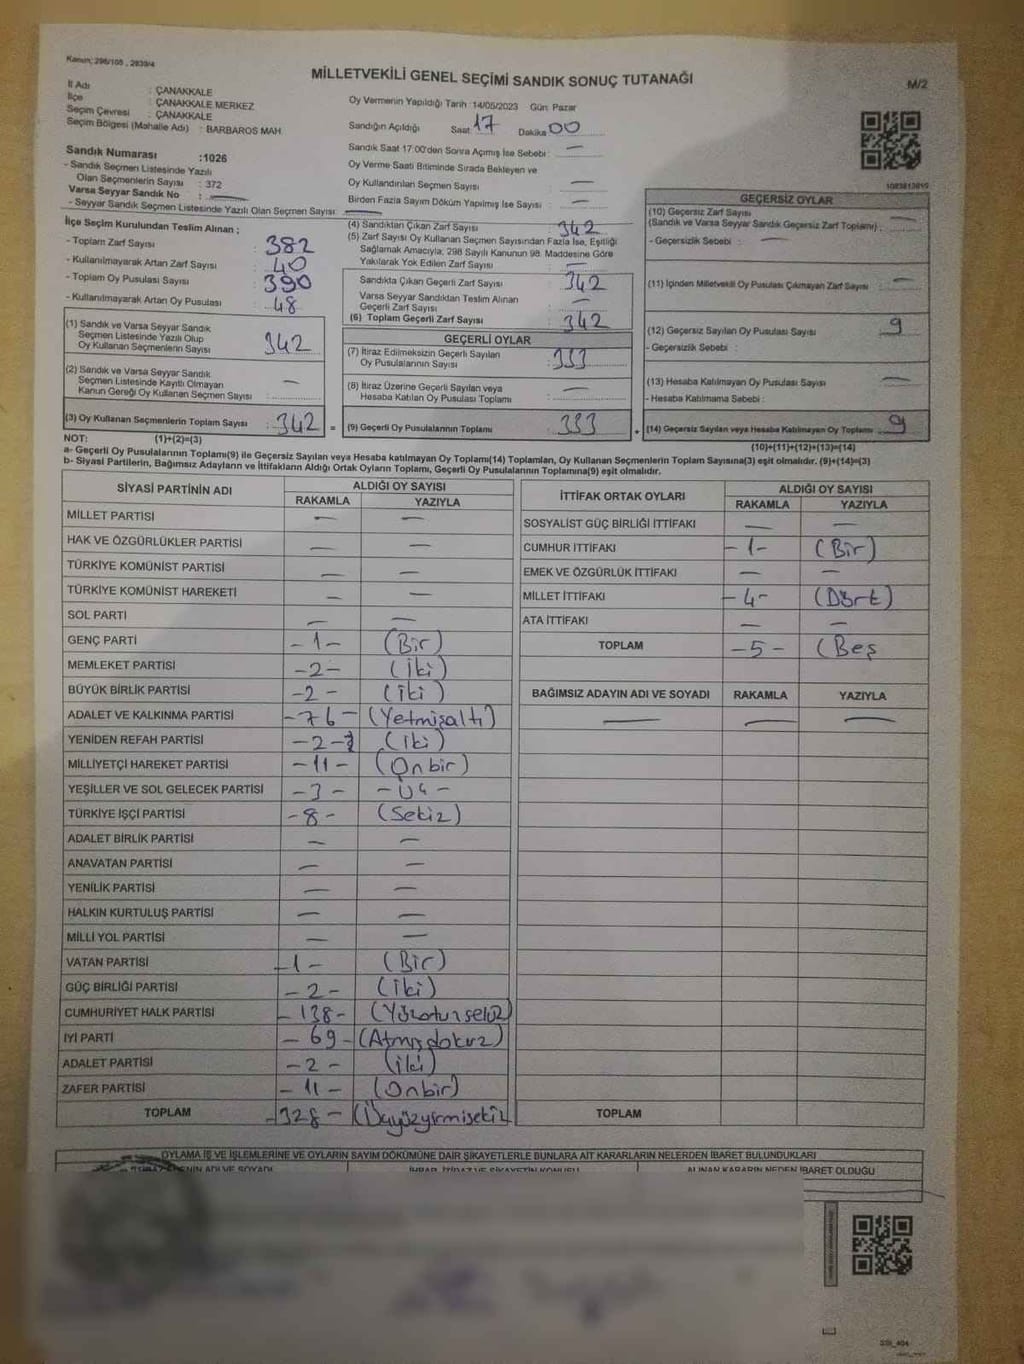 Kanun; 298/105 , 2839/4
MİLLETVEKİLİ GENEL SEÇİMİ SANDIK SONUÇ TUTANAĞI
M/2
İl Adı : ÇANAKKALE
İlçe : ÇANAKKALE MERKEZ
Seçim Çevresi : ÇANAKKALE
Seçim Bölgesi (Mahalle Adı) : BARBAROS MAH
Sandık Numarası :1026
- Sandık Seçmen Listesinde Yazılı
Olan Seçmenlerin Sayısı : 372
Varsa Seyyar Sandık No :
- Seyyar Sandık Seçmen Listesinde Yazılı Olan Seçmen Sayısı:
Oy Vermenin Yapıldığı Tarih :14/05/2023 Gün: Pazar
Sandığın Açıldığı Saat 17 Dakika 00
Sandık Saat 17:00'den Sonra Açılmış İse Sebebi : —
Oy Verme Saati Bitiminde Sırada Bekleyen ve
Oy Kullandırılan Seçmen Sayısı —
Birden Fazla Sayım Döküm Yapılmış İse Sayısı : —
1083813819
İlçe Seçim Kurulundan Teslim Alınan ;
- Toplam Zarf Sayısı : 382
- Kullanılmayarak Artan Zarf Sayısı : 40
- Toplam Oy Pusulası Sayısı : 390
- Kullanılmayarak Artan Oy Pusulası : 48
(1) Sandık ve Varsa Seyyar Sandık
Seçmen Listesinde Yazılı Olup
Oy Kullanan Seçmenlerin Sayısı : 342
(2) Sandık ve Varsa Seyyar Sandık
Seçmen Listesinde Kayıtlı Olmayan
Kanun Gereği Oy Kullanan Seçmen Sayısı : —
(3) Oy Kullanan Seçmenlerin Toplam Sayısı : 342 =
(4) Sandıktan Çıkan Zarf Sayısı : 342
(5) Zarf Sayısı Oy Kullanan Seçmen Sayısından Fazla İse, Eşitliği
Sağlamak Amacıyla; 298 Sayılı Kanunun 98. Maddesine Göre
Yakılarak Yok Edilen Zarf Sayısı : —
Sandıkta Çıkan Geçerli Zarf Sayısı : 342
Varsa Seyyar Sandıktan Teslim Alınan
Geçerli Zarf Sayısı : —
(6) Toplam Geçerli Zarf Sayısı : 342
GEÇERLİ OYLAR
(7) İtiraz Edilmeksizin Geçerli Sayılan
Oy Pusulalarının Sayısı : 333
(8) İtiraz Üzerine Geçerli Sayılan veya
Hesaba Katılan Oy Pusulası Toplamı : —
(9) Geçerli Oy Pusulalarının Toplamı : 333 +
GEÇERSİZ OYLAR
(10) Geçersiz Zarf Sayısı
(Sandık ve Varsa Seyyar Sandık Geçersiz Zarf Toplamı) : —
- Geçersizlik Sebebi : —
(11) İçinden Milletvekili Oy Pusulası Çıkmayan Zarf Sayısı : —
(12) Geçersiz Sayılan Oy Pusulası Sayısı : 9
- Geçersizlik Sebebi :
(13) Hesaba Katılmayan Oy Pusulası Sayısı : —
- Hesaba Katılmama Sebebi :
(14) Geçersiz Sayılan veya Hesaba Katılmayan Oy Toplamı : 9
NOT: (1)+(2)=(3)
(10)+(11)+(12)+(13)=(14)
a- Geçerli Oy Pusulalarının Toplamı(9) ile Geçersiz Sayılan veya Hesaba katılmayan Oy Toplamı(14) Toplamları, Oy Kullanan Seçmenlerin Toplam Sayısına(3) eşit olmalıdır. (9)+(14)=(3)
b- Siyasi Partilerin, Bağımsız Adayların ve İttifakların Aldığı Ortak Oyların Toplamı, Geçerli Oy Pusulalarının Toplamına(9) eşit olmalıdır.
SİYASİ PARTİNİN ADI ALDIĞI OY SAYISI
RAKAMLA YAZIYLA
MİLLET PARTİSİ — —
HAK VE ÖZGÜRLÜKLER PARTİSİ — —
TÜRKİYE KOMÜNİST PARTİSİ — —
TÜRKİYE KOMÜNİST HAREKETİ — —
SOL PARTİ — —
GENÇ PARTİ -1- (Bir)
MEMLEKET PARTİSİ -2- (iki)
BÜYÜK BİRLİK PARTİSİ -2- (iki)
ADALET VE KALKINMA PARTİSİ -76- (Yetmişaltı)
YENİDEN REFAH PARTİSİ -2- (iki)
MİLLİYETÇİ HAREKET PARTİSİ -11- (Onbir)
YEŞİLLER VE SOL GELECEK PARTİSİ -3- -Üç-
TÜRKİYE İŞÇİ PARTİSİ -8- (Sekiz)
ADALET BİRLİK PARTİSİ — —
ANAVATAN PARTİSİ — —
YENİLİK PARTİSİ — —
HALKIN KURTULUŞ PARTİSİ — —
MİLLİ YOL PARTİSİ — —
VATAN PARTİSİ -1- (Bir)
GÜÇ BİRLİĞİ PARTİSİ -2- (iki)
CUMHURİYET HALK PARTİSİ -138- (Yüzotuzsekiz)
İYİ PARTİ -69- (Atmışdokuz)
ADALET PARTİSİ -2- (iki)
ZAFER PARTİSİ -11- (Onbir)
TOPLAM -328- (Üçyüzyirmisekiz
İTTİFAK ORTAK OYLARI ALDIĞI OY SAYISI
RAKAMLA YAZIYLA
SOSYALİST GÜÇ BİRLİĞİ İTTİFAKI — —
CUMHUR İTTİFAKI -1- (Bir)
EMEK VE ÖZGÜRLÜK İTTİFAKI — —
MİLLET İTTİFAKI -4- (Dört)
ATA İTTİFAKI — —
TOPLAM -5- (Beş
BAĞIMSIZ ADAYIN ADI VE SOYADI RAKAMLA YAZIYLA
— — —
TOPLAM
OYLAMA İŞ VE İŞLEMLERİNE VE OYLARIN SAYIM DÖKÜMÜNE DAİR ŞİKAYETLERLE BUNLARA AİT KARARLARIN NELERDEN İBARET BULUNDUKLARI
ADI VE SOYADI İHBAR, İTİRAZ VE ŞİKAYETİN KONUSU ALINAN KARARIN NEDEN İBARET OLDUĞU